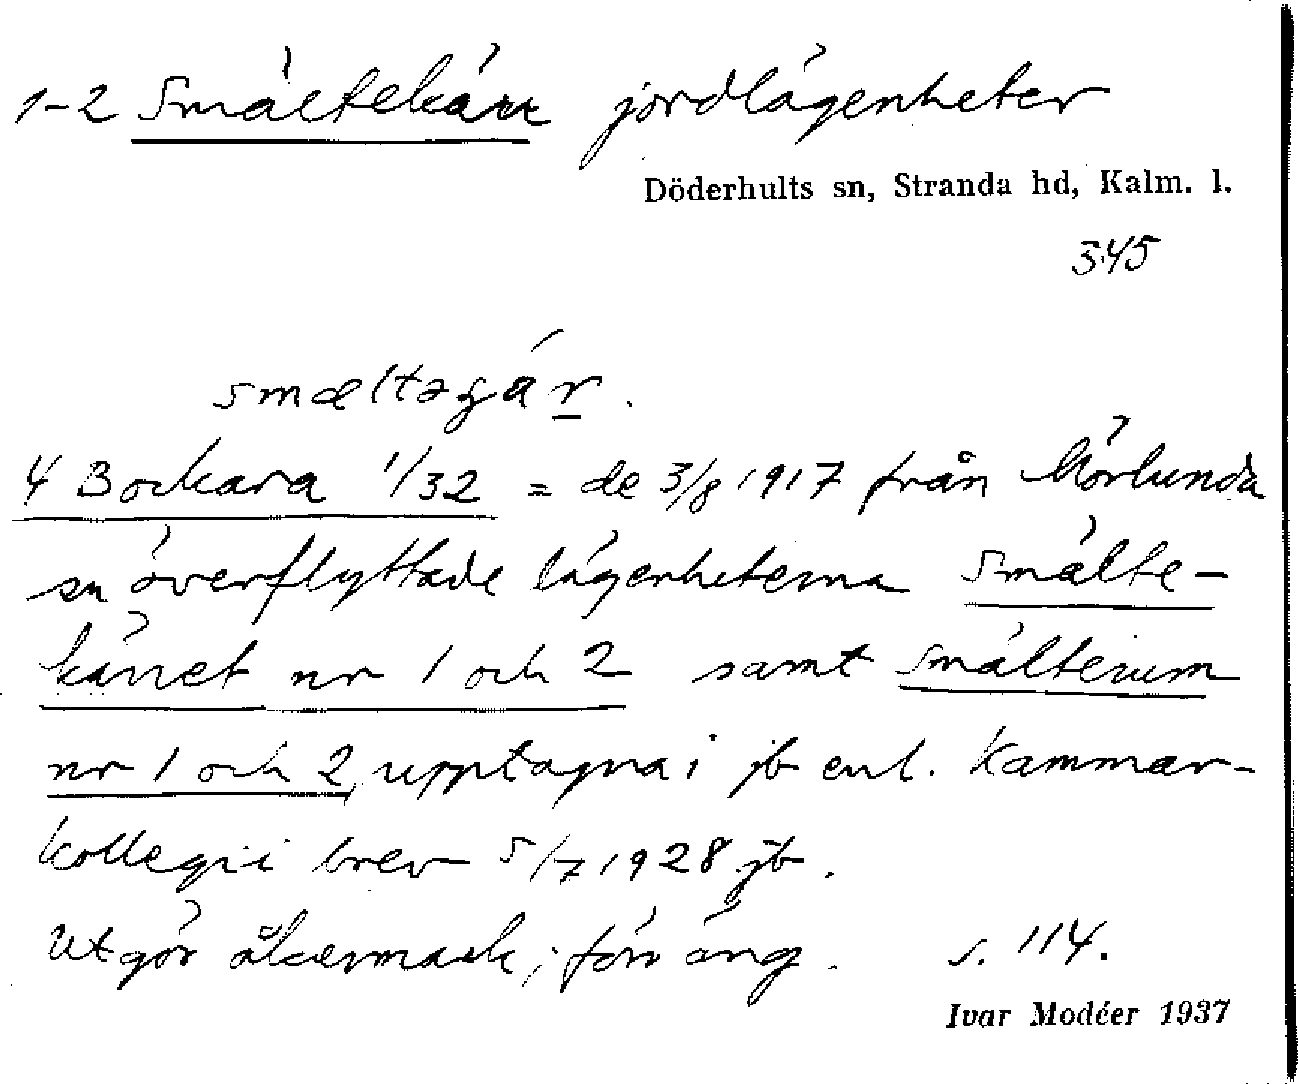 1-2 Smältekärr jordlägenheter
Döderhults sn, Stranda hd, Kalm. l.
345
smæltəgár.
4 Bockara 1/32 = de 3/8 1917 från Mörlunda
sn överflyttade lägenheterna Smälte-
kärret nr 1 och 2 samt Smälterum
nr 1 och 2, upptagna i jb enl. Kammar-
kollegii brev 5/7 1928 jb.
Utgör åkermark; förr äng. s. 114.
Ivar Modéer 1937